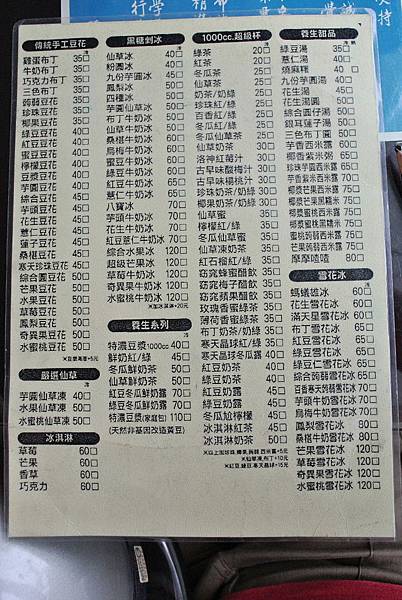 行學
傳統手工豆花
雞蛋布丁 35
牛奶布丁 35
巧克力布丁 35
三色布丁 35
蒟蒻豆花 35
珍珠豆花 35
椰果豆花 35
綠豆豆花 40
紅豆豆花 40
蜜豆豆花 40
檸檬豆花 40
豆漿豆花 40
芋圓豆花 40
綜合豆花 45
芋頭豆花 45
花生豆花 45
薏仁豆花 45
蓮子豆花 45
桑椹豆花 45
寒天珍珠豆花 45
綜合圓豆花 50
芒果豆花 50
水果豆花 50
草莓豆花 50
鳳梨豆花 50
奇異果豆花 50
水蜜桃豆花 50
嚴選仙草
芋圓仙草凍 40
水果仙草凍 50
水蜜桃仙草凍 50
冰淇淋
草莓 60
芒果 60
香草 60
巧克力 60
黑糖剉冰
仙草冰 40
粉圓冰 40
九份芋圓冰 40
鳳梨冰 50
四種冰 50
芋圓仙草冰 50
布丁牛奶冰 50
仙草牛奶冰 60
桑椹牛奶冰 60
烏梅牛奶冰 60
蜜豆牛奶冰 60
綠豆牛奶冰 60
紅豆牛奶冰 60
花生牛奶冰 65
薏仁牛奶冰 65
八寶冰 70
芋頭牛奶冰 70
花生牛奶冰 70
紅豆薏仁牛奶冰 70
綜合水果冰 120
超級芒果冰 120
草莓牛奶冰 120
奇異果牛奶冰 120
水蜜桃牛奶冰 120
※加冰淇淋+20元
養生系列
特濃豆漿1000cc 40
鮮奶紅/綠 45
冬瓜鮮奶茶 50
仙草鮮奶茶 50
紅豆冬瓜鮮奶露 70
綠豆冬瓜鮮奶露 70
特濃豆漿(家庭包) 110
(天然非基因改造黃豆)
1000cc.超級杯
綠茶 20
紅茶 20
冬瓜茶 25
仙草茶 25
奶茶/奶綠 25
珍珠紅/綠 25
百香紅/綠 25
冬瓜紅/綠 25
冬瓜仙草茶 25
仙草奶茶 35
洛神紅莓汁 35
古早味酸梅汁 35
古早味楊桃汁 35
珍珠奶茶/奶綠 35
椰果奶茶/奶綠 35
仙草蜜 35
檸檬紅/綠 35
冬瓜仙草蜜 35
紅石榴紅/綠 35
窈窕蜂蜜醋飲 35
窈窕梅子醋飲 35
窈窕蘋果醋飲 35
玫瑰香蜜綠茶 35
薄荷香蜜綠茶 35
布丁奶茶/奶綠 35
寒天晶球紅/綠 35
寒天晶球冬瓜露 40
紅豆奶茶 40
綠豆奶茶 40
紅豆冬瓜露 40
綠豆冬瓜露 40
冬瓜尬檸檬 40
冰淇淋紅茶 50
冰淇淋奶茶 50
※仙草凍,布丁+10元
※紅豆,綠豆,寒天晶球+15元
養生甜品
綠豆湯 35
薏仁湯 40
燒麻糬 40
九份芋圓湯 40
花生湯 45
花生湯圓 50
綜合圓仔湯 50
銀耳蓮子湯 50
三色布丁圓 50
芋香西米露 60
椰香紫米粥 65
珍珠芋圓西米露 65
椰漿芒果西米露 65
椰漿芒果黑糯米 65
椰漿蜜桃西米露 65
椰漿蜜桃黑糯米 65
蜜桃蒟蒻西米露 60
芒果蒟蒻西米露 60
摩摩喳喳 80
雪花冰
螞蟻雄冰 60
花生雪花冰 60
滿天星雪花冰 60
布丁雪花冰 60
紅豆雪花冰 60
綠豆雪花冰 60
綠豆仁雪花冰 65
綜合蒟蒻雪花冰 70
百香寒天蒟蒻雪花冰 70
芋頭牛奶雪花冰 70
烏梅牛奶雪花冰 70
鳳梨雪花冰 80
桑椹牛奶雪花冰 80
芒果雪花冰 120
草莓雪花冰 120
奇異果雪花冰 120
水蜜桃雪花冰 120